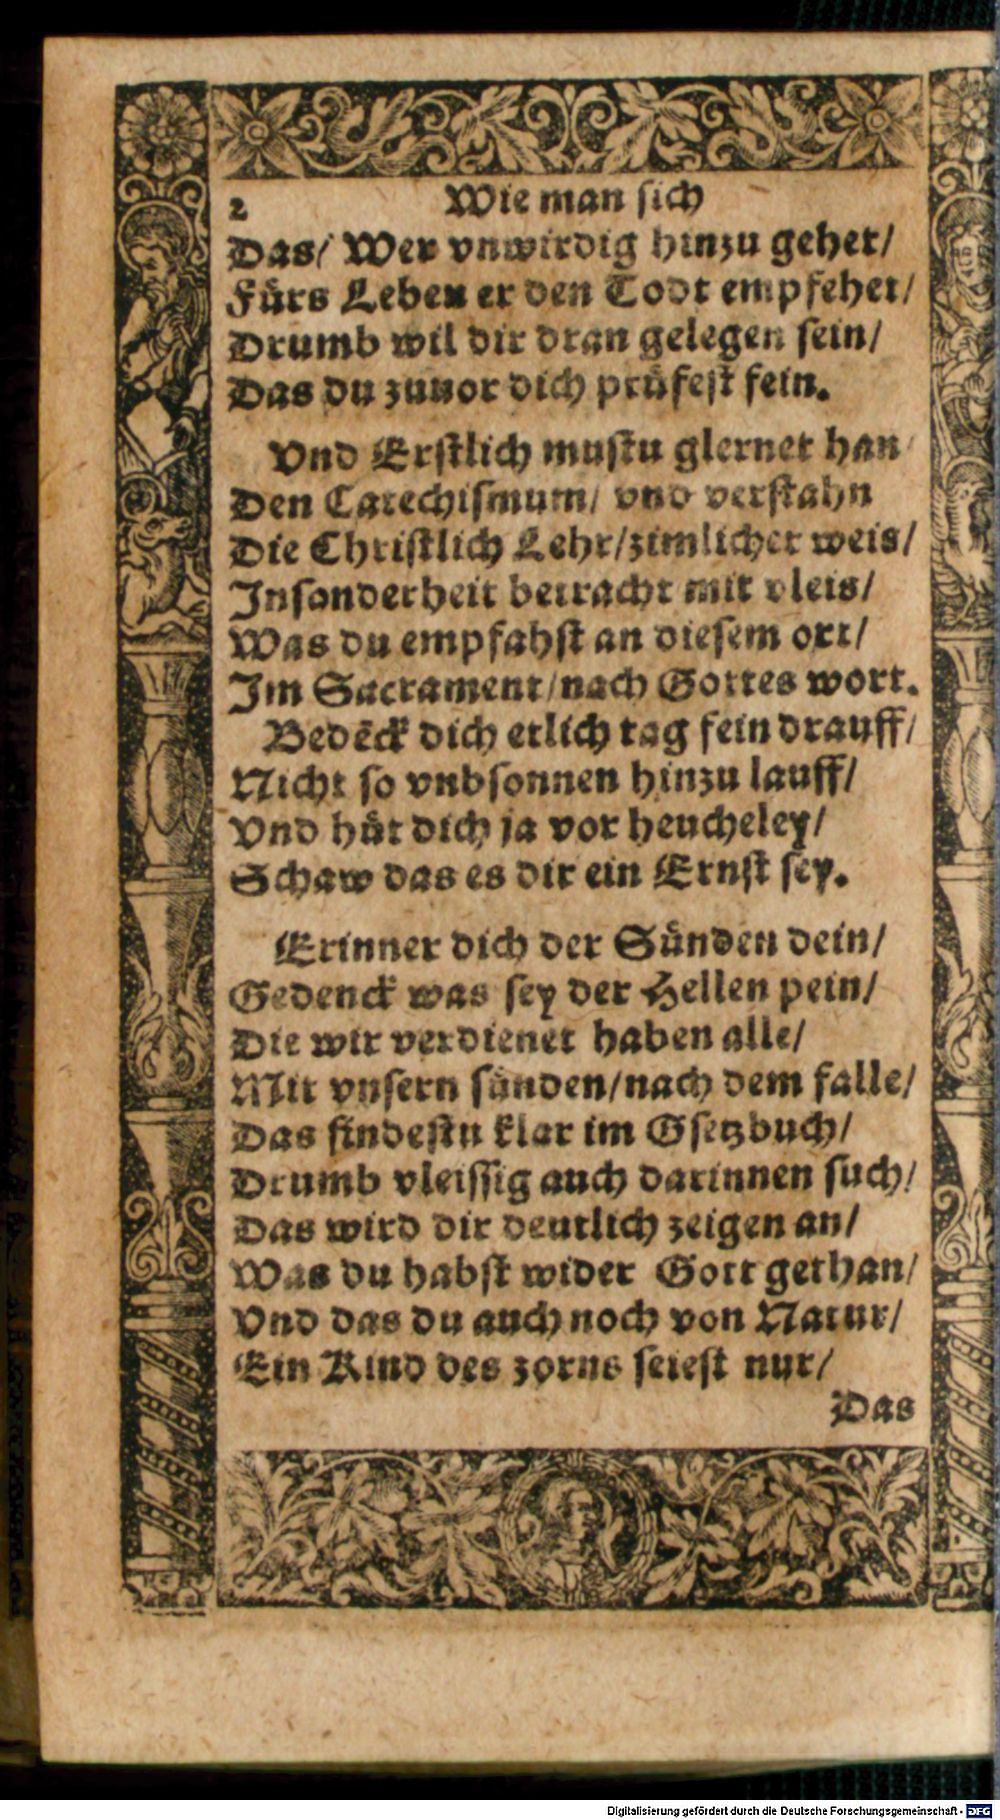 2 Wie man sich
Das/ Wer vnwirdig hinzu gehet/
Fürs Leben er den Todt empfehet/
Drumb wil dir dran gelegen sein/
Das du zuuor dich prüfest fein.
Vnd Erstlich mustu glernet han
Den Catechismum/ vnd verstahn
Die Christlich Lehr/zimlicher weis/
Insonderheit betracht mit vleis/
Was du empfahst an diesem ort/
Im Sacrament/nach Gottes wort.
Bedēck dich etlich tag fein drauff/
Nicht so vnbsonnen hinzu lauff/
Vnd hüt dich ja vor heucheley/
Schaw das es dir ein Ernst sey.
Erinner dich der Sünden dein/
Gedenck was sey der Hellen pein/
Die wir verdienet haben alle/
Mit vnsern sünden/nach dem falle/
Das findestu klar im Gsetzbuch/
Drumb vleissig auch darinnen such/
Das wird dir deutlich zeigen an/
Was du habst wider Gott gethan/
Vnd das du auch noch von Natur/
Ein Kind des zorns seiest nur/
Das
Digitalisierung gefördert durch die Deutsche Forschungsgemeinschaft - DFG